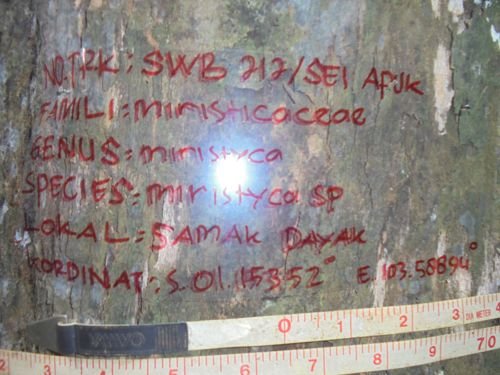 NO.TRK: SWB 212/SEI AFJK
FAMILI: miristicaceae
GENUS: miristyca
SPECIES: miristyca SP
LOKAL: SAMAK DAYAK
KORDINAT: S.01.15352° E.103.58894°
0 1 2 3 4
DIA METER
1 2 3 4 5 6 7 8 9 70